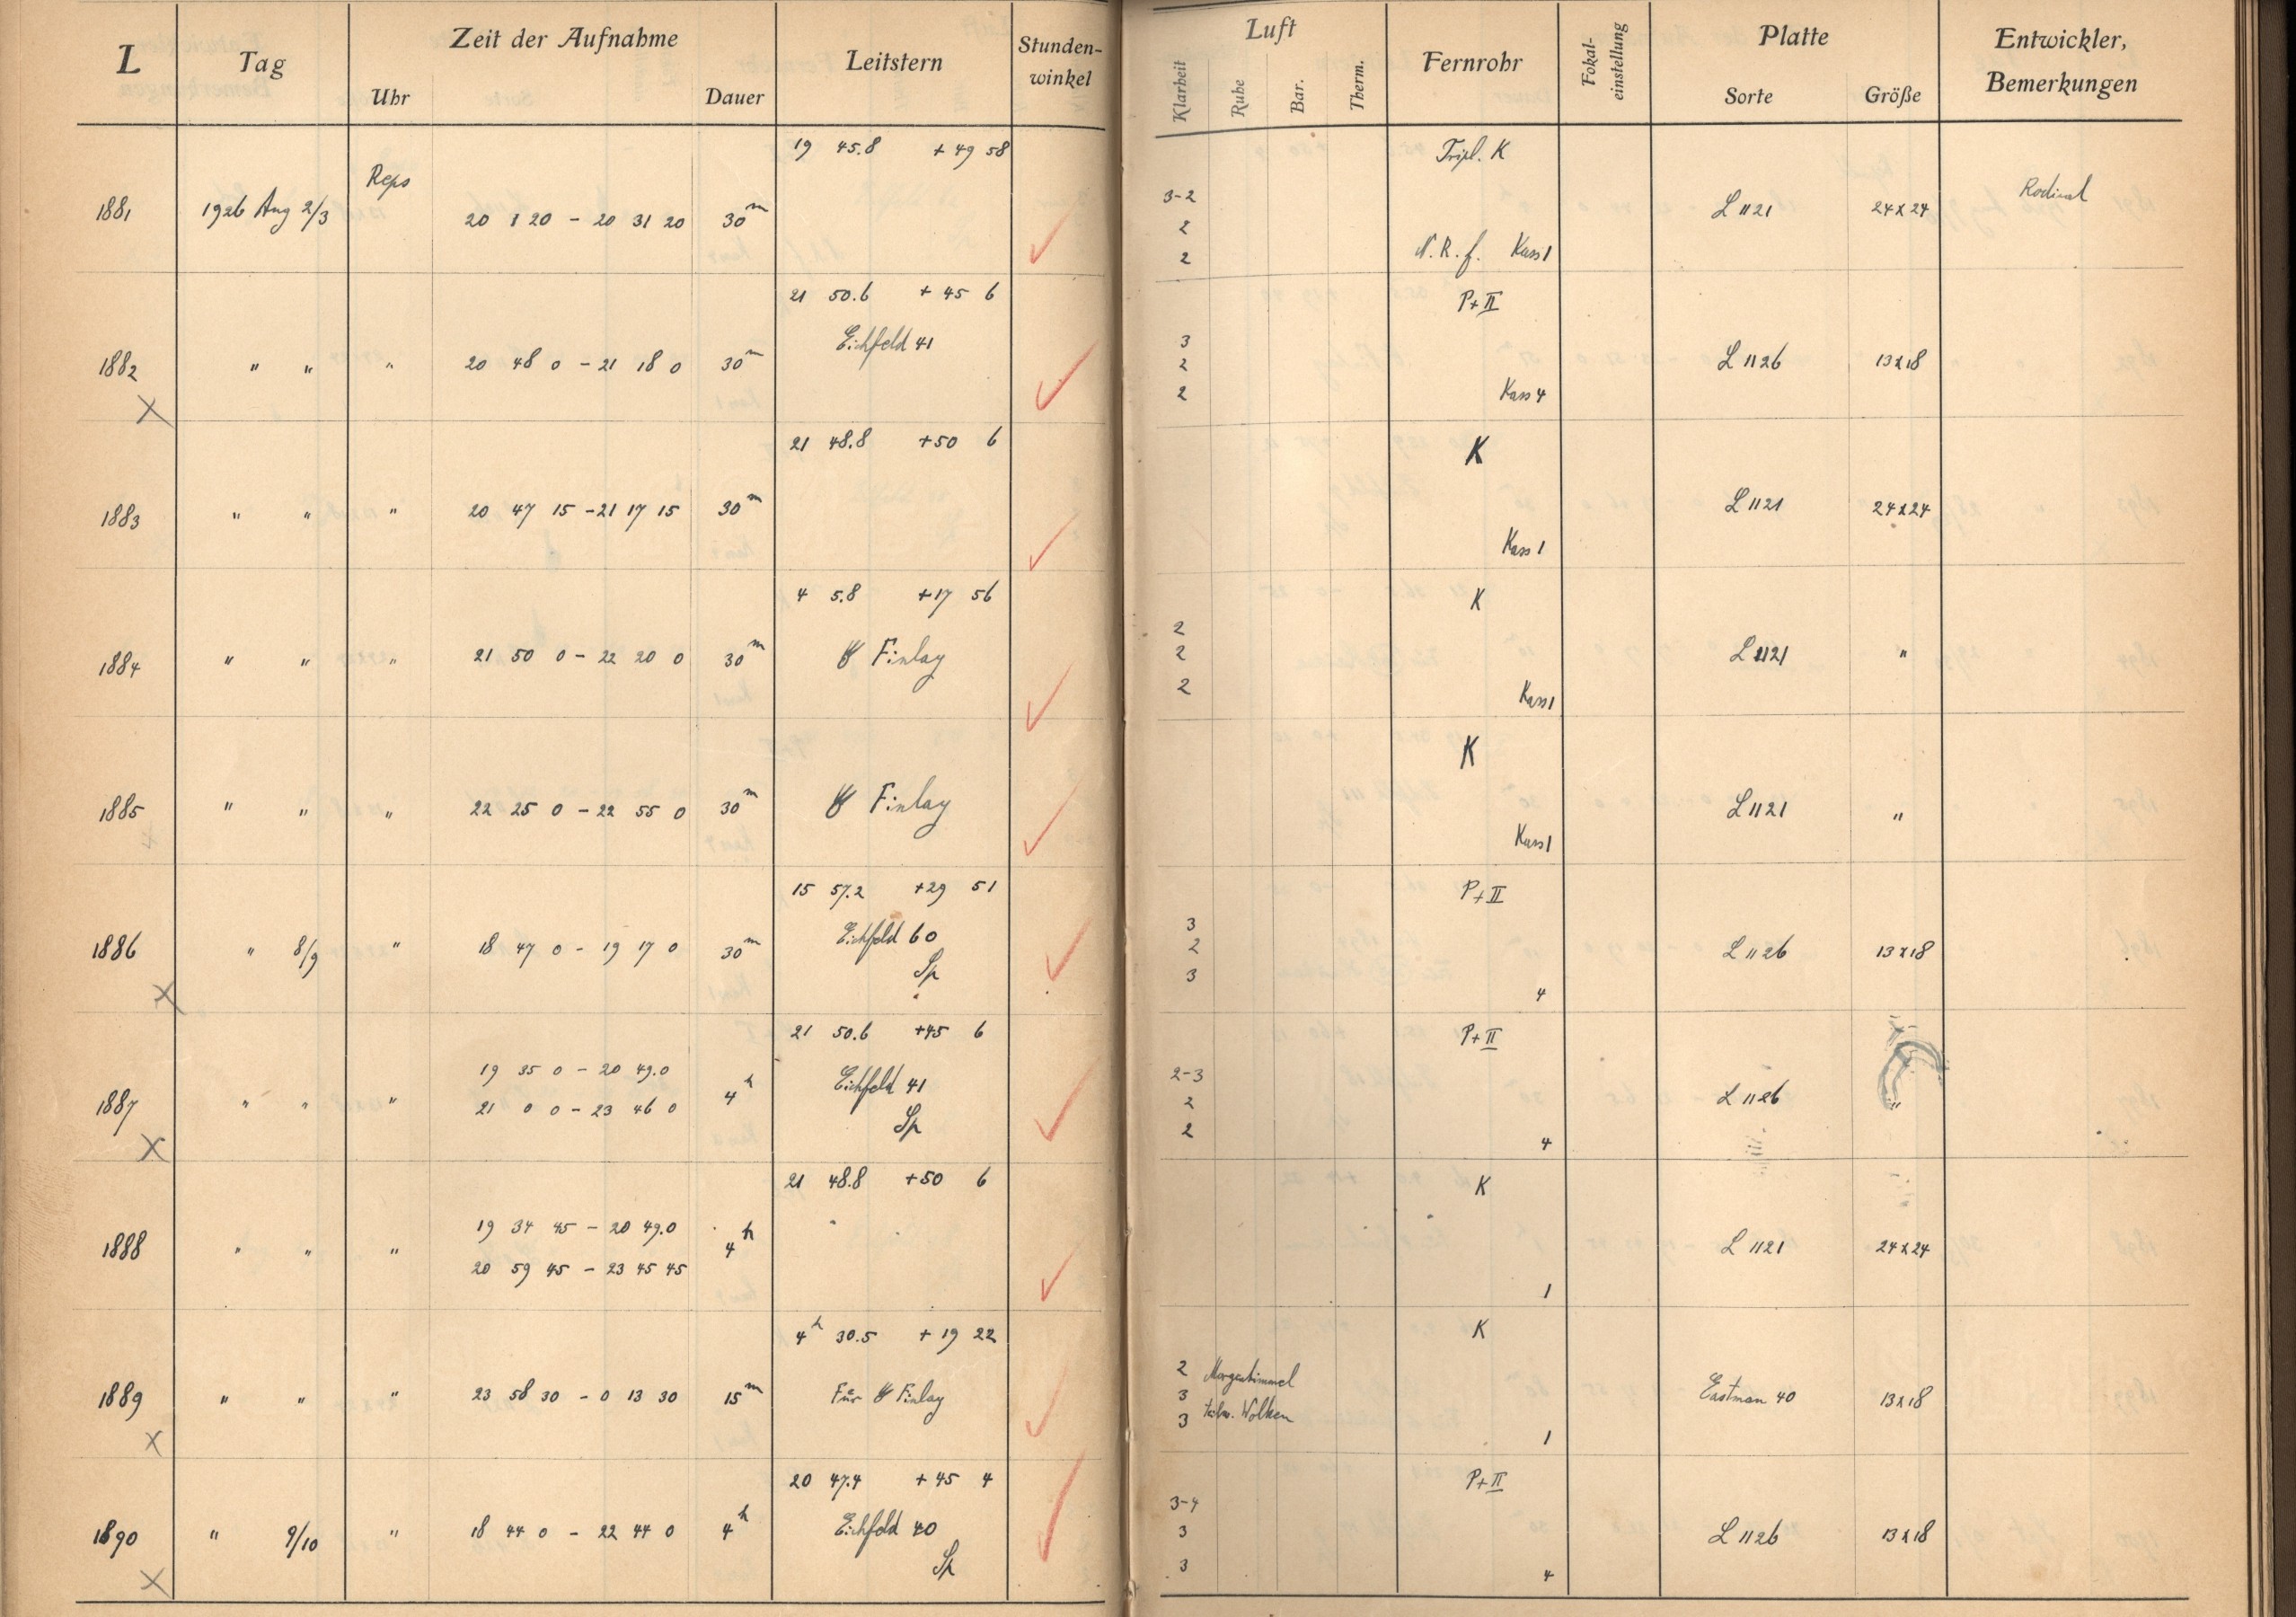 L Tag Zeit der Aufnahme Leitstern Stunden-winkel Luft Fernrohr Fokal-einstellung Platte Entwickler, Bemerkungen
Uhr Dauer Klarheit Ruhe Bar. Therm. Sorte Größe
19 45.8 + 49 58 Tripl. K
Reps 3-2 Rodinal
1881 1926 Aug 2/3 20 1 20 - 20 31 20 30m 2 L 1121 24x24
2 N. R. f. Kass 1
21 50.6 + 45 6 P+II
Eichfeld 41 3
1882 " " " 20 48 0 - 21 18 0 30m 2 L 1126 13x18
X 2 Kass 4
21 48.8 +50 6 K
1883 " " " 20 47 15 - 21 17 15 30m L 1121 24x24
Kass 1
4 5.8 +17 56 K
2
1884 " " " 21 50 0 - 22 20 0 30m Finlay 2 L 1121 "
2 Kass 1
K
1885 " " " 22 25 0 - 22 55 0 30m Finlay L 1121 "
Kass 1
15 57.2 +29 51 P+II
Eichfeld 60 3
1886 " 8/9 " 18 47 0 - 19 17 0 30m 2 L 1126 13x18
X Sp 3 4
21 50.6 +45 6 P+II
19 35 0 - 20 49.0 Eichfeld 41 2-3
1887 " " " 21 0 0 - 23 46 0 4h 2 L 1126 "
X Sp 2 4
21 48.8 +50 6 K
19 34 45 - 20 49.0
1888 " " " 4h L 1121 24x24
20 59 45 - 23 45 45 1
4h 30.5 + 19 22 K
2 Morgenhimmel
1889 " " " 23 58 30 - 0 13 30 15m Für Finlay 3 Eastman 40 13x18
X 3 Wolken 1
20 47.4 + 45 4 P+II
3-4
1890 " 9/10 " 18 44 0 - 22 44 0 4h Eichfeld 40 3 L 1126 13x18
X Sp 3 4